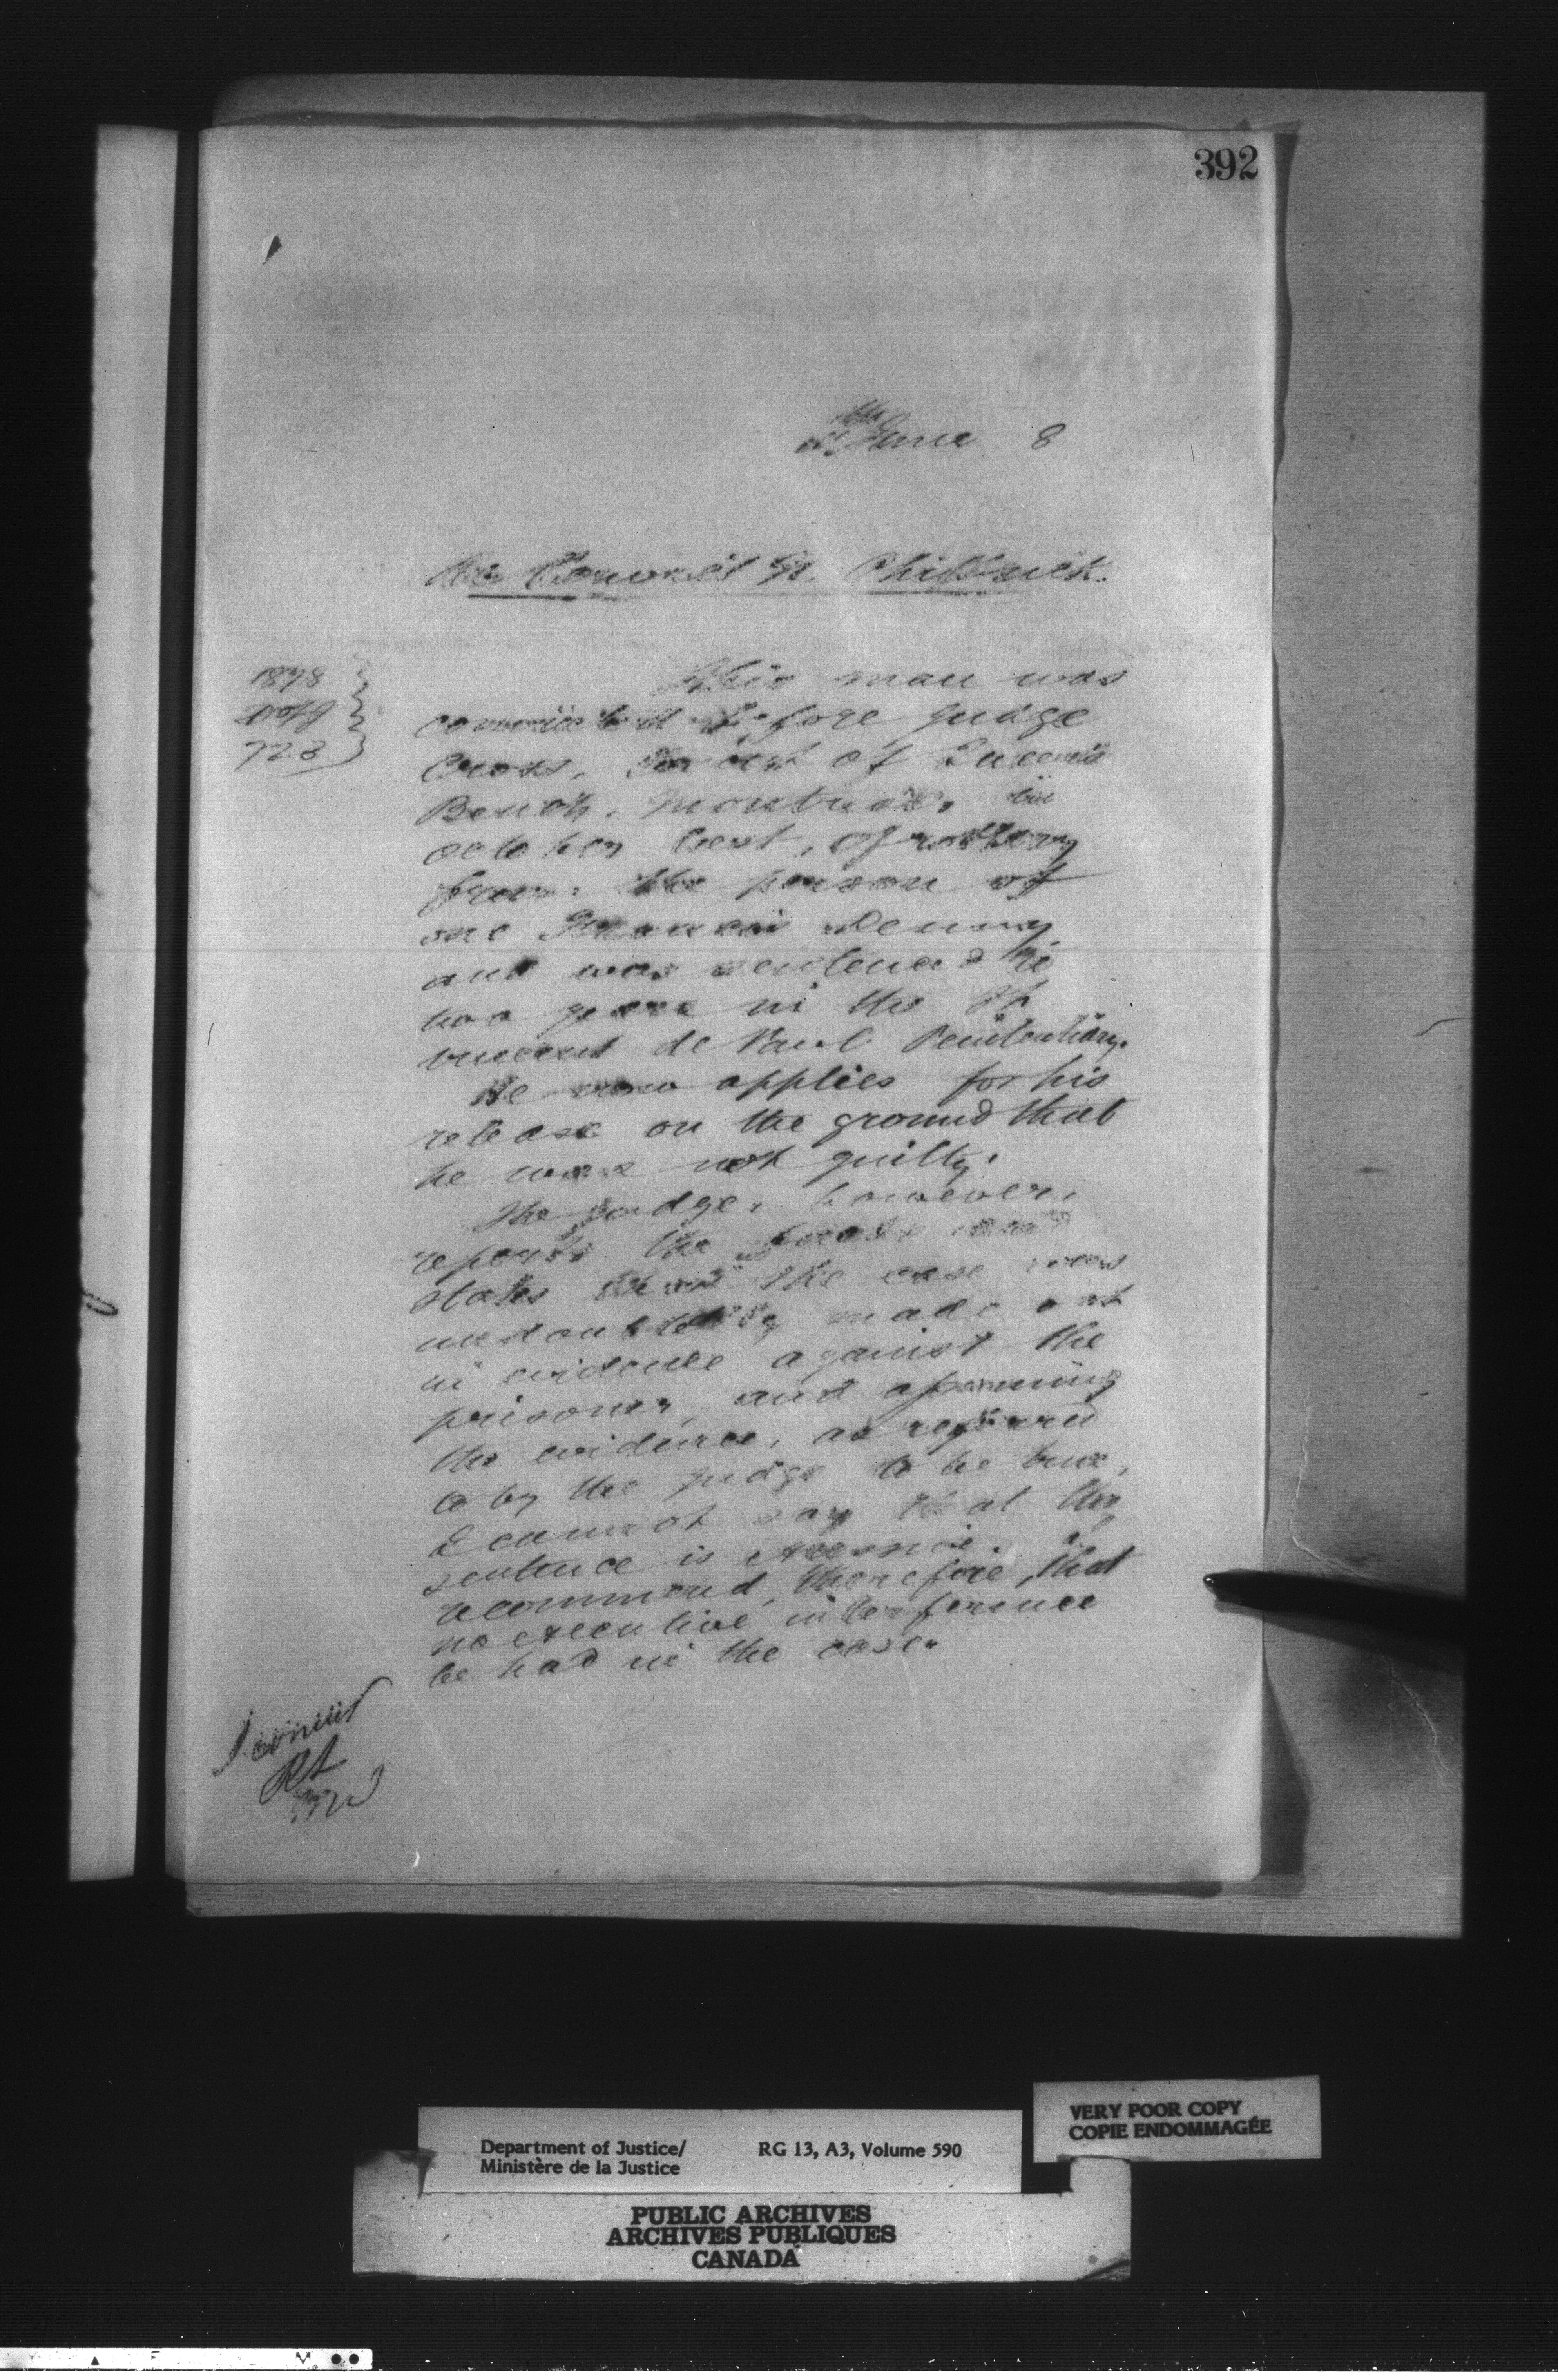 392
June 8
Re Convict
1878
723
This man was
convicted before Judge
Cross, Court of Queen's
Bench, Montreal, in
October last, of robbery
from the person of
one Francois Denny
and was sentenced to
two years in the St
Vincent de Paul Penitentiary.
He now applies for his
release on the ground that
he was not guilty.
The Judge, however,
reports the facts and
states that the case was
undoubtedly made out
in evidence against the
prisoner, and assuming
the evidence, as referred
to by the Judge to be true,
I cannot say that the
sentence is excessive. I
recommend, therefore, that
no executive interference
be had in the case.
I concur
Department of Justice/
Ministère de la Justice
RG 13, A3, Volume 590
VERY POOR COPY
COPIE ENDOMMAGÉE
PUBLIC ARCHIVES
ARCHIVES PUBLIQUES
CANADA